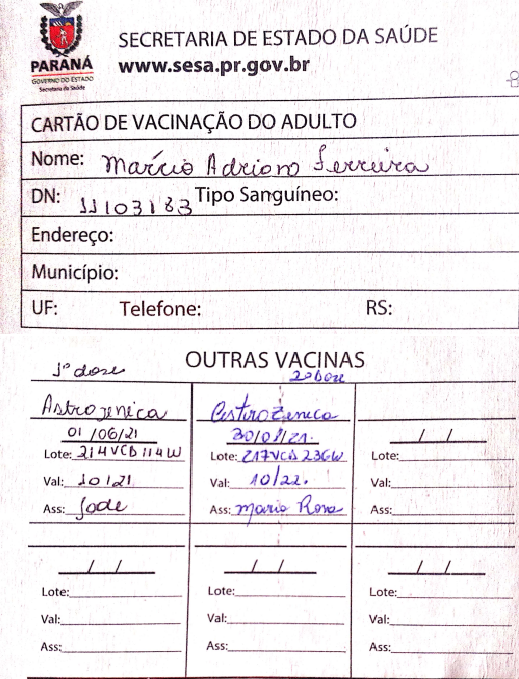 PARANÁ
GOVERNO DO ESTADO
Secretaria da Saúde
SECRETARIA DE ESTADO DA SAÚDE
www.sesa.pr.gov.br
CARTÃO DE VACINAÇÃO DO ADULTO
Nome: Marcio Adriano Ferreira
DN: 11103183 Tipo Sanguíneo:
Endereço:
Município:
UF: Telefone: RS:
OUTRAS VACINAS
1ª dose 2ª Dose
Astrozenica Astrozenica
01/06/21 30/08/21. / /
Lote: 214VCD114W Lote: 217VCD236W Lote:
Val: 10/21 Val: 10/22. Val:
Ass: Jade Ass: Maria Rosa Ass:
/ / / / / /
Lote: Lote: Lote:
Val: Val: Val:
Ass: Ass: Ass: